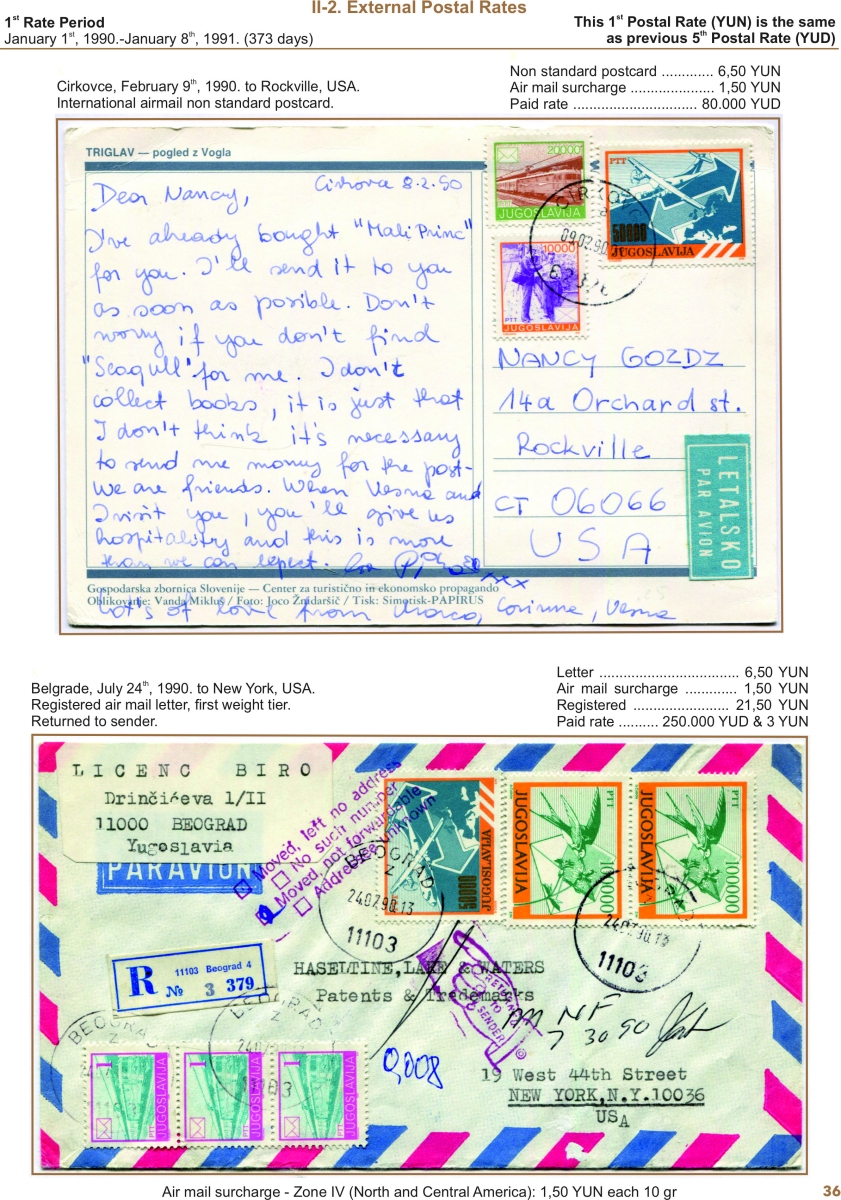 II-2. External Postal Rates
1st Rate Period
January 1st, 1990.-January 8th, 1991. (373 days)
This 1st Postal Rate (YUN) is the same
as previous 5th Postal Rate (YUD)
Cirkovce, February 9th, 1990. to Rockville, USA.
International airmail non standard postcard.
Non standard postcard ............. 6,50 YUN
Air mail surcharge ..................... 1,50 YUN
Paid rate ............................... 80.000 YUD
TRIGLAV — pogled z Vogla
Cirkovce 8.2.90
Dear Nancy,
I've already bought "Mali Princ"
for you. I'll send it to you
as soon as posible. Don't
worry if you don't find
"Seagull" for me. I don't
collect books, it is just that
I don't think it's necessary
to send me money for the post-
we are friends. When Vesna and
I visit you, you'll give us
hospitality and this is more
than we can expect.
Lot's of love from Corinna, Vesna
Gospodarska zbornica Slovenije — Center za turistično in ekonomsko propagando
Oblikovanje: Vanda Mikluš / Foto: Joco Žnidaršič / Tisk: Simorisk-PAPIRUS
20000
JUGOSLAVIJA
PTT
50000
JUGOSLAVIJA
10000
PTT
JUGOSLAVIJA
09.02.90
NANCY GOZDZ
14a Orchard st.
Rockville
CT 06066
USA
LETALSKO
PAR AVION
Belgrade, July 24th, 1990. to New York, USA.
Registered air mail letter, first weight tier.
Returned to sender.
Letter ................................... 6,50 YUN
Air mail surcharge ............. 1,50 YUN
Registered ........................ 21,50 YUN
Paid rate .......... 250.000 YUD & 3 YUN
LICENC BIRO
Drinčićeva 1/II
11000 BEOGRAD
Yugoslavia
PAR AVION
Moved, left no address
No such number
Moved not forwardable
Addressee unknown
50000
JUGOSLAVIJA
PTT
JUGOSLAVIJA
100000
PTT
JUGOSLAVIJA
100000
BEOGRAD
2
24.07.90.13
11103
24.07.90.13
11103
R
11103 Beograd 4
№ 3 379
HASELTINE, LAKE & WATERS
Patents & Trademarks
RETURN
TO
SENDER
MNF
7 30 90
0,008
19 West 44th Street
NEW YORK,N.Y.10036
USA
BEOGRAD
2
BEOGRAD
2
11103
1
PTT
JUGOSLAVIJA
1
PTT
JUGOSLAVIJA
1
PTT
JUGOSLAVIJA
Air mail surcharge - Zone IV (North and Central America): 1,50 YUN each 10 gr
36